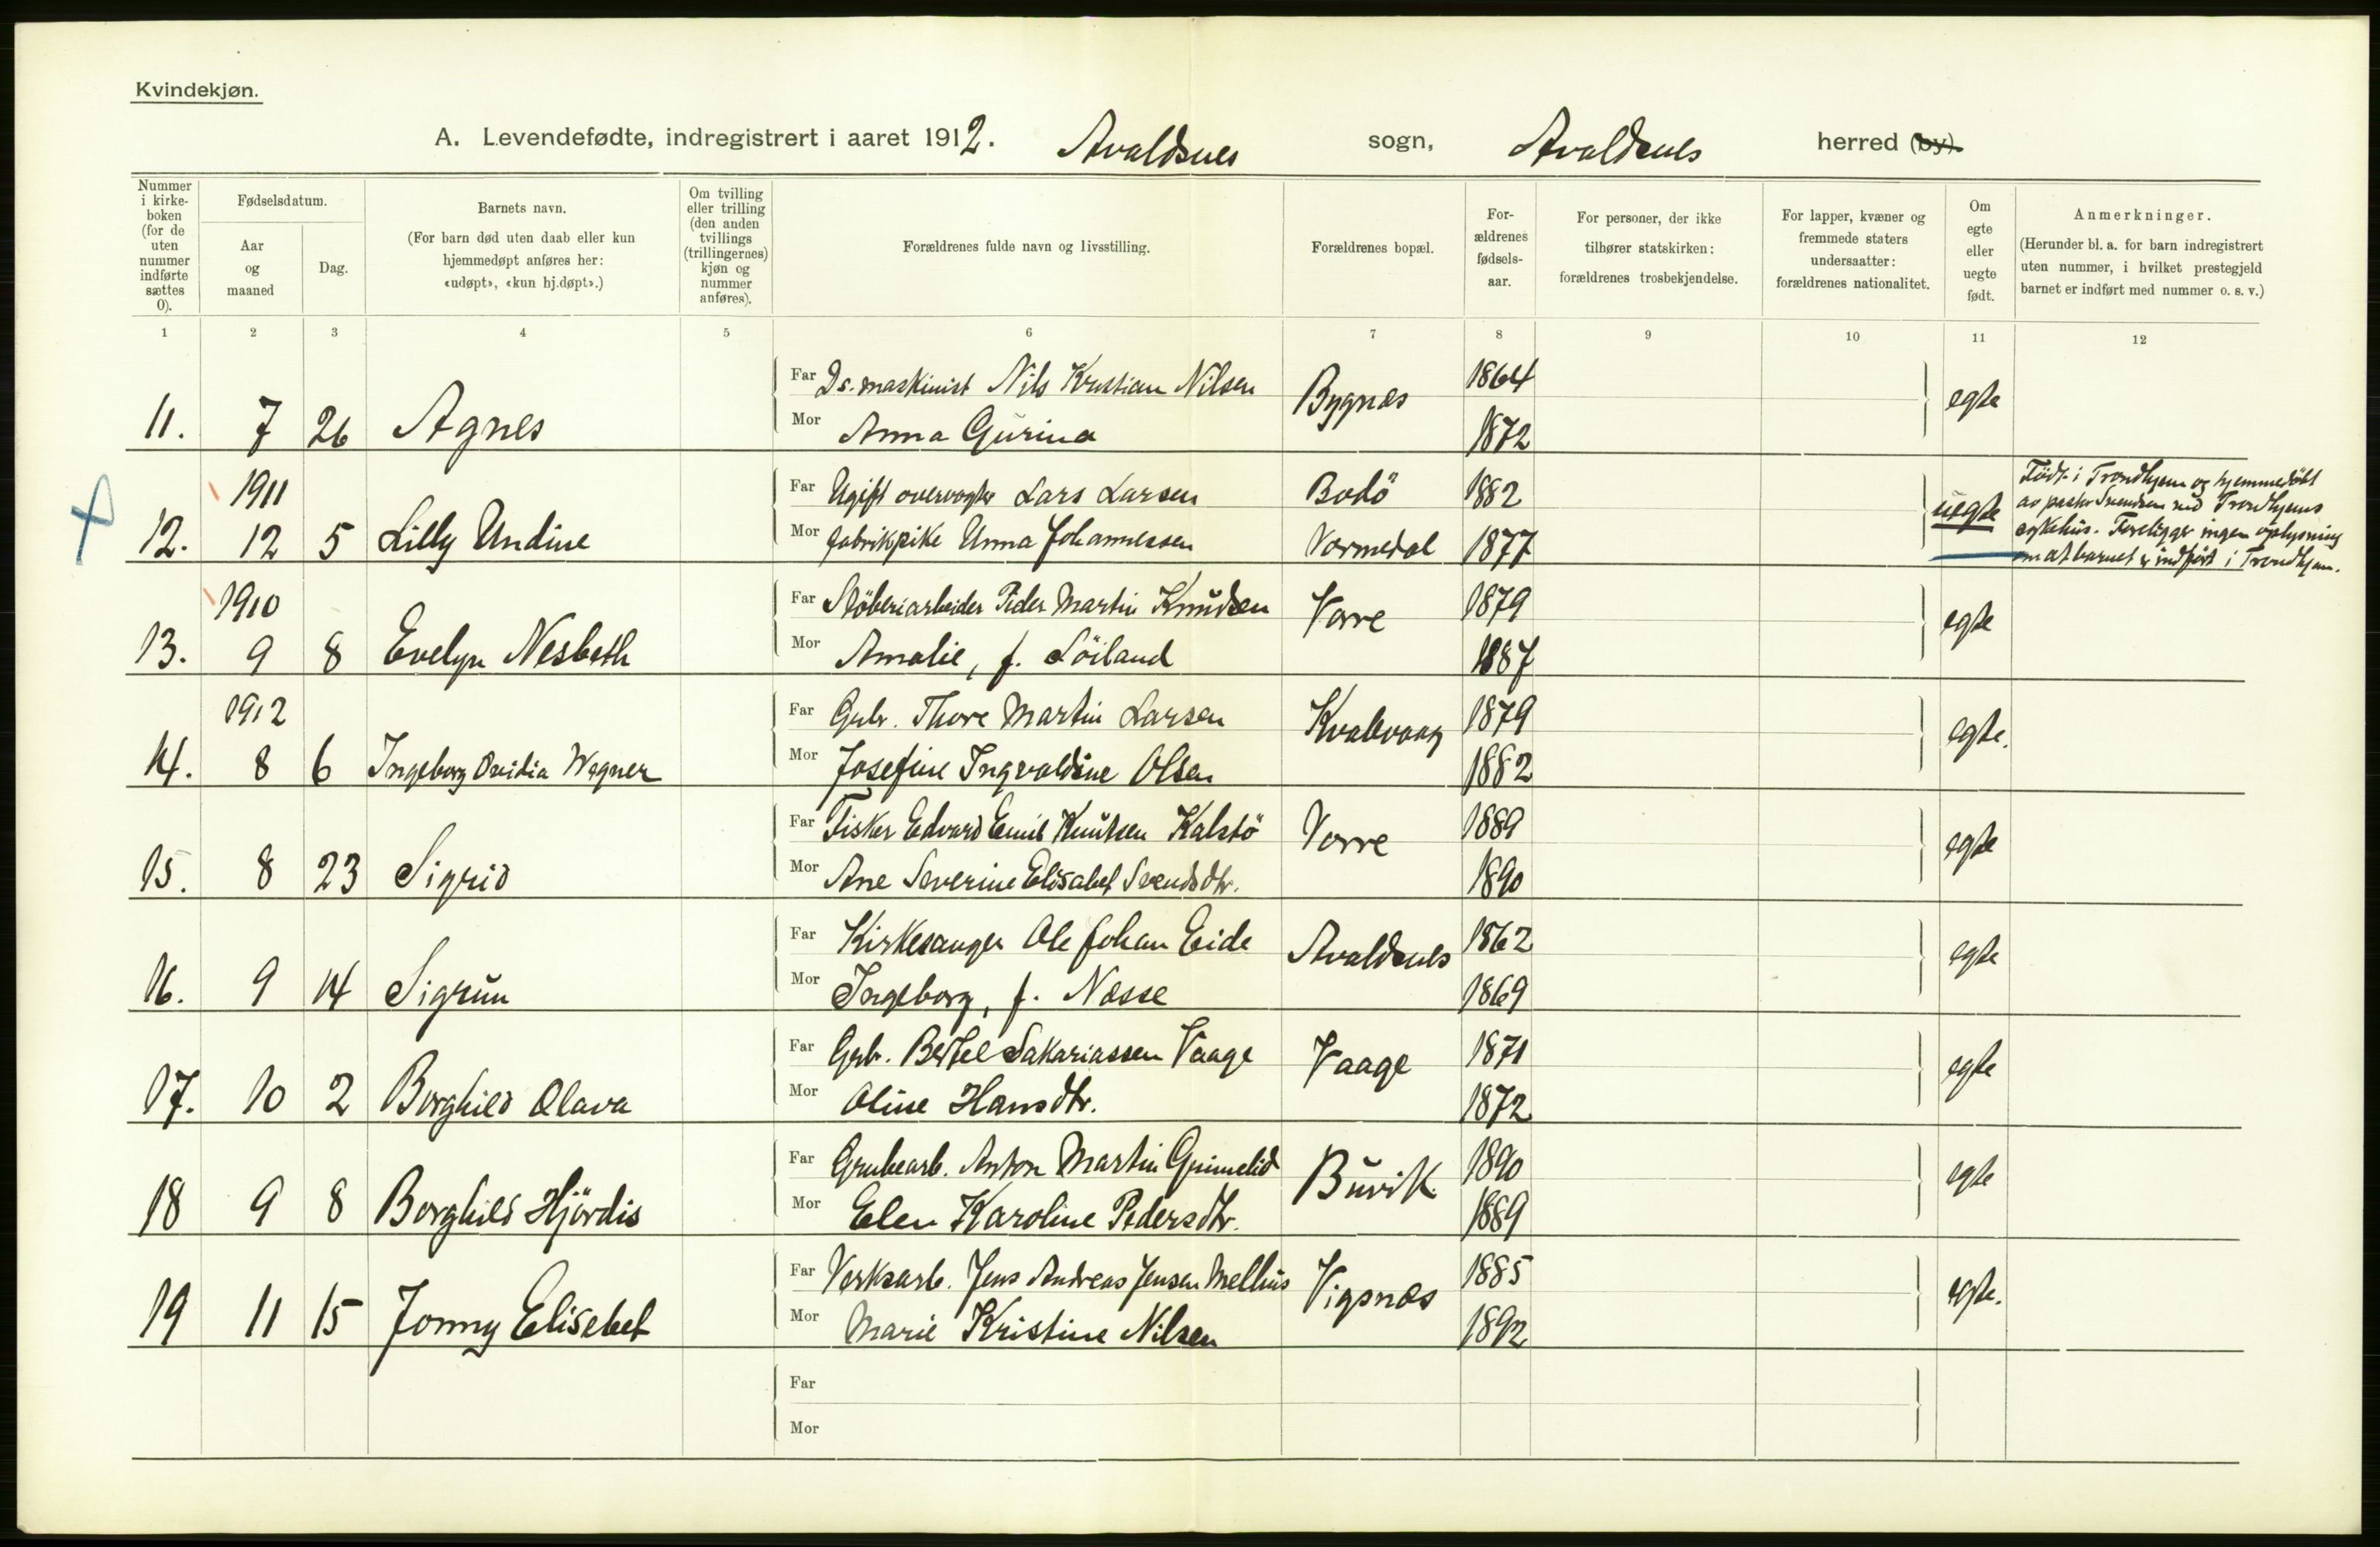 Kvindekjøn.
A. Levendefødte, indregistrert i aaret 1912. Avaldsnes sogn, Avaldsnes herred (by).
Nummer i kirke-boken (for de uten nummer indførte sættes 0).
Fødselsdatum.
Aar og maaned
Dag.
Barnets navn.
(For barn død uten daab eller kun hjemmedøpt anføres her: «udøpt», «kun hj.døpt».)
Om tvilling eller trilling (den anden tvillings (trillingernes) kjøn og nummer anføres).
Forældrenes fulde navn og livsstilling.
Forældrenes bopæl.
For-ældrenes fødsels-aar.
For personer, der ikke tilhører statskirken: forældrenes trosbekjendelse.
For lapper, kvæner og fremmede staters undersaatter: forældrenes nationalitet.
Om egte eller uegte født.
Anmerkninger.
(Herunder bl. a. for barn indregistrert uten nummer, i hvilket prestegjeld barnet er indført med nummer o. s. v.)
1 2 3 4 5 6 7 8 9 10 11 12
Far Ds. maskinist Nils Kristian Nilsen Bygnæs 1864 egte
11. 7 26 Agnes Mor Anna Gurina 1872
1911 Far Ugift overvogter Lars Larsen Bodö 1882 uegte
12. 12 5 Lilly Undine Mor fabrikpike Anna Johannessen Vormedal 1877
Födt i Trondhjem og hjemmedöbt
av pastor Svendsen ved Trondhjems
sykehus. Foreligger ingen oplysning
om at barnet er indfört i Trondhjem.
1910 Far Stöberiarbeider Peder Martin Knudsen Vorre 1879 egte
13. 9 8 Evelyn Nesbeth Mor Amalie, f. Löiland 1887
1912 Far Grb. Thore Martin Larsen Kvalevaag 1879 egte.
14. 8 6 Ingeborg Ovidia Wagner Mor Josefine Ingvaldine Olsen 1882
Far Fisker Edvard Emil Knutsen Kalstö Vorre 1889 egte
15. 8 23 Sigrid Mor Ane Severine Elisabet Svendsdtr. 1890
Far Kirkesanger Ole Johan Eide Avaldsnes 1862 egte
16. 9 14 Sigrun Mor Ingeborg, f. Næsse 1869
Far Grb. Bertel Sakariassen Vaage Vaage 1871 egte
17. 10 2 Borghild Olava Mor Oline Hansdtr. 1872
Far Grubearb. Anton Martin Grimelid Buvik. 1890 egte
18 9 8 Borghild Hjördis Mor Elen Karoline Pedersdtr. 1889
Far Verksarb. Jens Andreas Jensen Melhus Vigsnæs 1885 egte.
19 11 15 Jonny Elisebet Mor Marie Kristine Nilsen 1892
Far
Mor